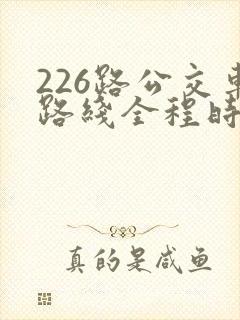 226路公交车
路线全程时
真的是咸鱼